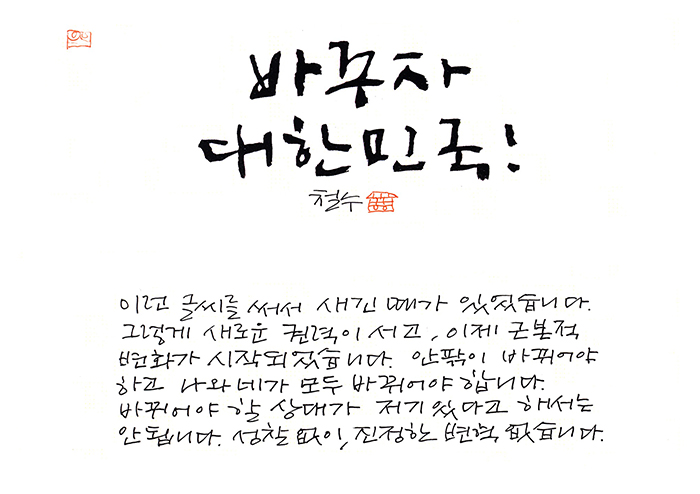 바꾸자
대한민국!
철수
이런 글씨를 써서 새긴 때가 있었습니다.
그렇게 새로운 권력이 서고, 이제 근본적
변화가 시작되었습니다. 안팎이 바뀌어야
하고 나와 네가 모두 바뀌어야 합니다.
바뀌어야 할 상대가 저기 있다고 해서는
안됩니다. 성찰 없이, 진정한 변혁 없습니다.